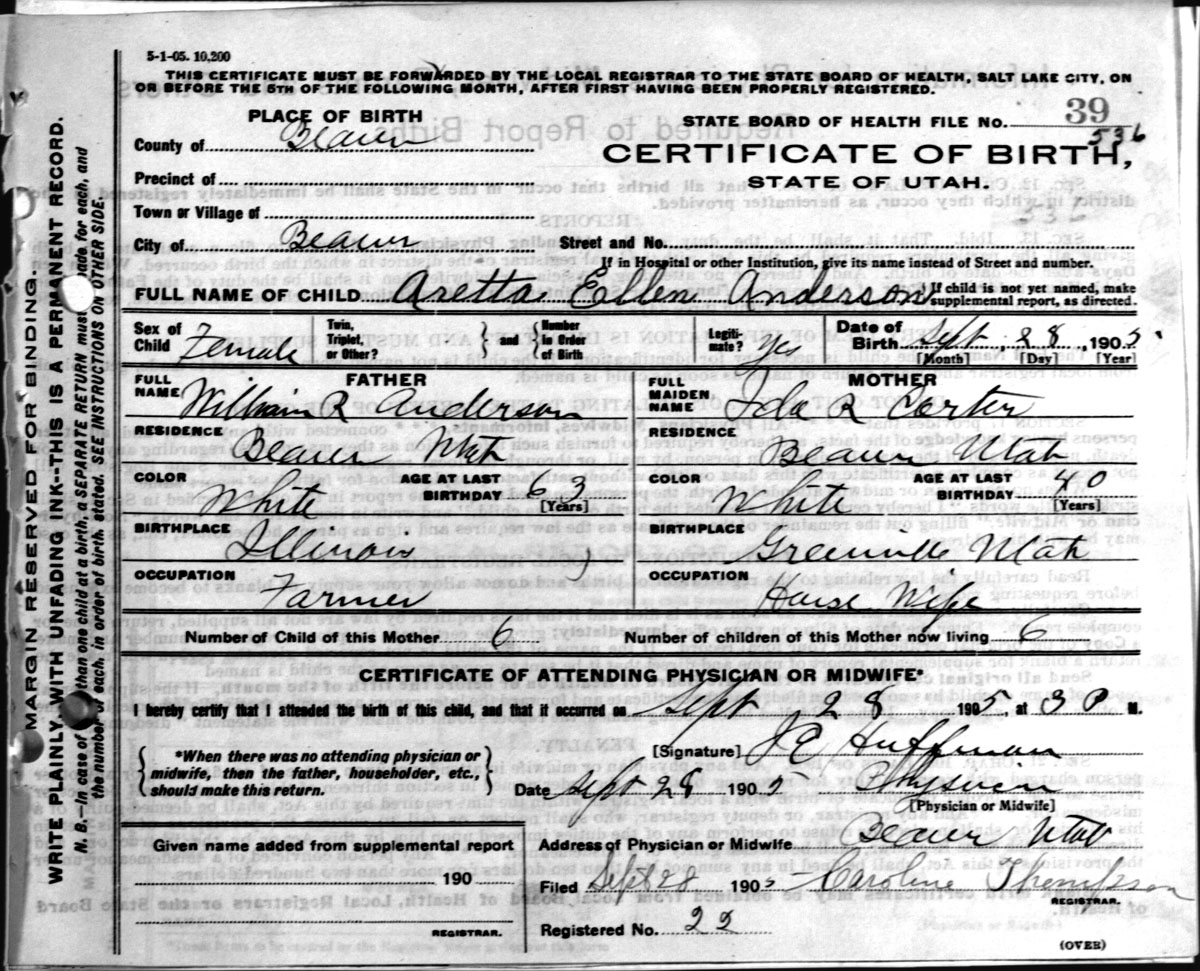 5-1-05. 10,200
THIS CERTIFICATE MUST BE FORWARDED BY THE LOCAL REGISTRAR TO THE STATE BOARD OF HEALTH, SALT LAKE CITY, ON
OR BEFORE THE 5TH OF THE FOLLOWING MONTH, AFTER FIRST HAVING BEEN PROPERLY REGISTERED.
PLACE OF BIRTH
County of Beaver
Precinct of
Town or Village of
City of Beaver
STATE BOARD OF HEALTH FILE No. 39
536
CERTIFICATE OF BIRTH,
STATE OF UTAH.
Street and No.
If in Hospital or other Institution, give its name instead of Street and number.
FULL NAME OF CHILD Aretta Ellen Anderson
If child is not yet named, make
supplemental report, as directed.
Sex of Child Female
Twin, Triplet, or Other?
and
Number in Order of Birth
Legitimate? Yes
Date of Birth Sept 28, 1905
[Month] [Day] [Year]
FATHER
FULL NAME William R Anderson
RESIDENCE Beaver Utah
COLOR White
AGE AT LAST BIRTHDAY 63
[Years]
BIRTHPLACE Illinois
OCCUPATION Farmer
MOTHER
FULL MAIDEN NAME Ida R Carter
RESIDENCE Beaver Utah
COLOR White
AGE AT LAST BIRTHDAY 40
[Years]
BIRTHPLACE Greenville Utah
OCCUPATION House Wife
Number of Child of this Mother 6
Number of children of this Mother now living 6
CERTIFICATE OF ATTENDING PHYSICIAN OR MIDWIFE*
I hereby certify that I attended the birth of this child, and that it occurred on Sept 28 1905, at 3 P M.
*When there was no attending physician or
midwife, then the father, householder, etc.,
should make this return.
[Signature] J E Huffman
Date Sept 28 1905 Physician
[Physician or Midwife]
Given name added from supplemental report
190
REGISTRAR.
Address of Physician or Midwife Beaver Utah
Filed Sept 28 1905 Caroline Thompson
REGISTRAR.
Registered No. 22
(OVER)
MARGIN RESERVED FOR BINDING.
WRITE PLAINLY, WITH UNFADING INK--THIS IS A PERMANENT RECORD.
N. B.--In case of more than one child at a birth, a SEPARATE RETURN must be made for each, and
the number of each, in order of birth, stated. SEE INSTRUCTIONS ON OTHER SIDE.